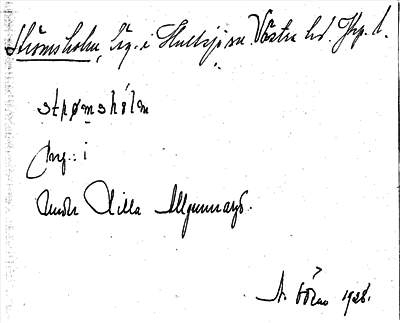 Strömsholm, lg. i Hultsjö sn. Västra hd. Jkp. l.
strømshólm
lng.: i
Under Lilla Algunnaryd.
A. 1928.